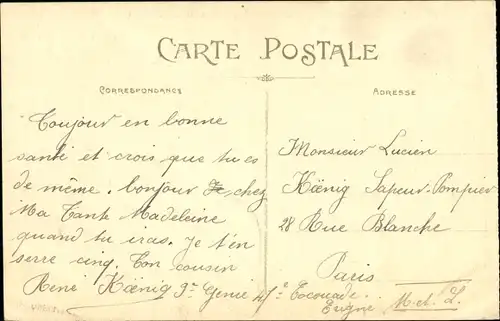 CARTE POSTALE
CORRESPONDANCE
ADRESSE
Toujour en bonne
santé et crois que tu es
de même. bonjour chez
Ma Tante Madeleine
quand tu iras. Je t'en
serre cinq. Ton cousin
René Kœnig 9e Genie 47e
Monsieur Lucien
Kœnig Sapeur-Pompier
28 Rue Blanche
Paris